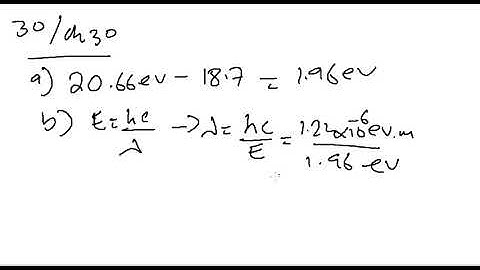 30/ch30
a) 20.66ev - 18.7 = 1.96ev
b) E = hc/λ → λ = hc/E = 1.24x10⁻⁶ev.m/1.96 ev